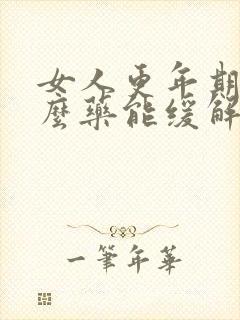 女人更年期
麽藥能缓解
一筆年華